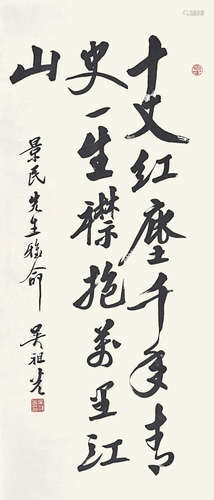 十丈红尘千年青
史一生襟抱万里江
山
景民先生雅命
吴祖光